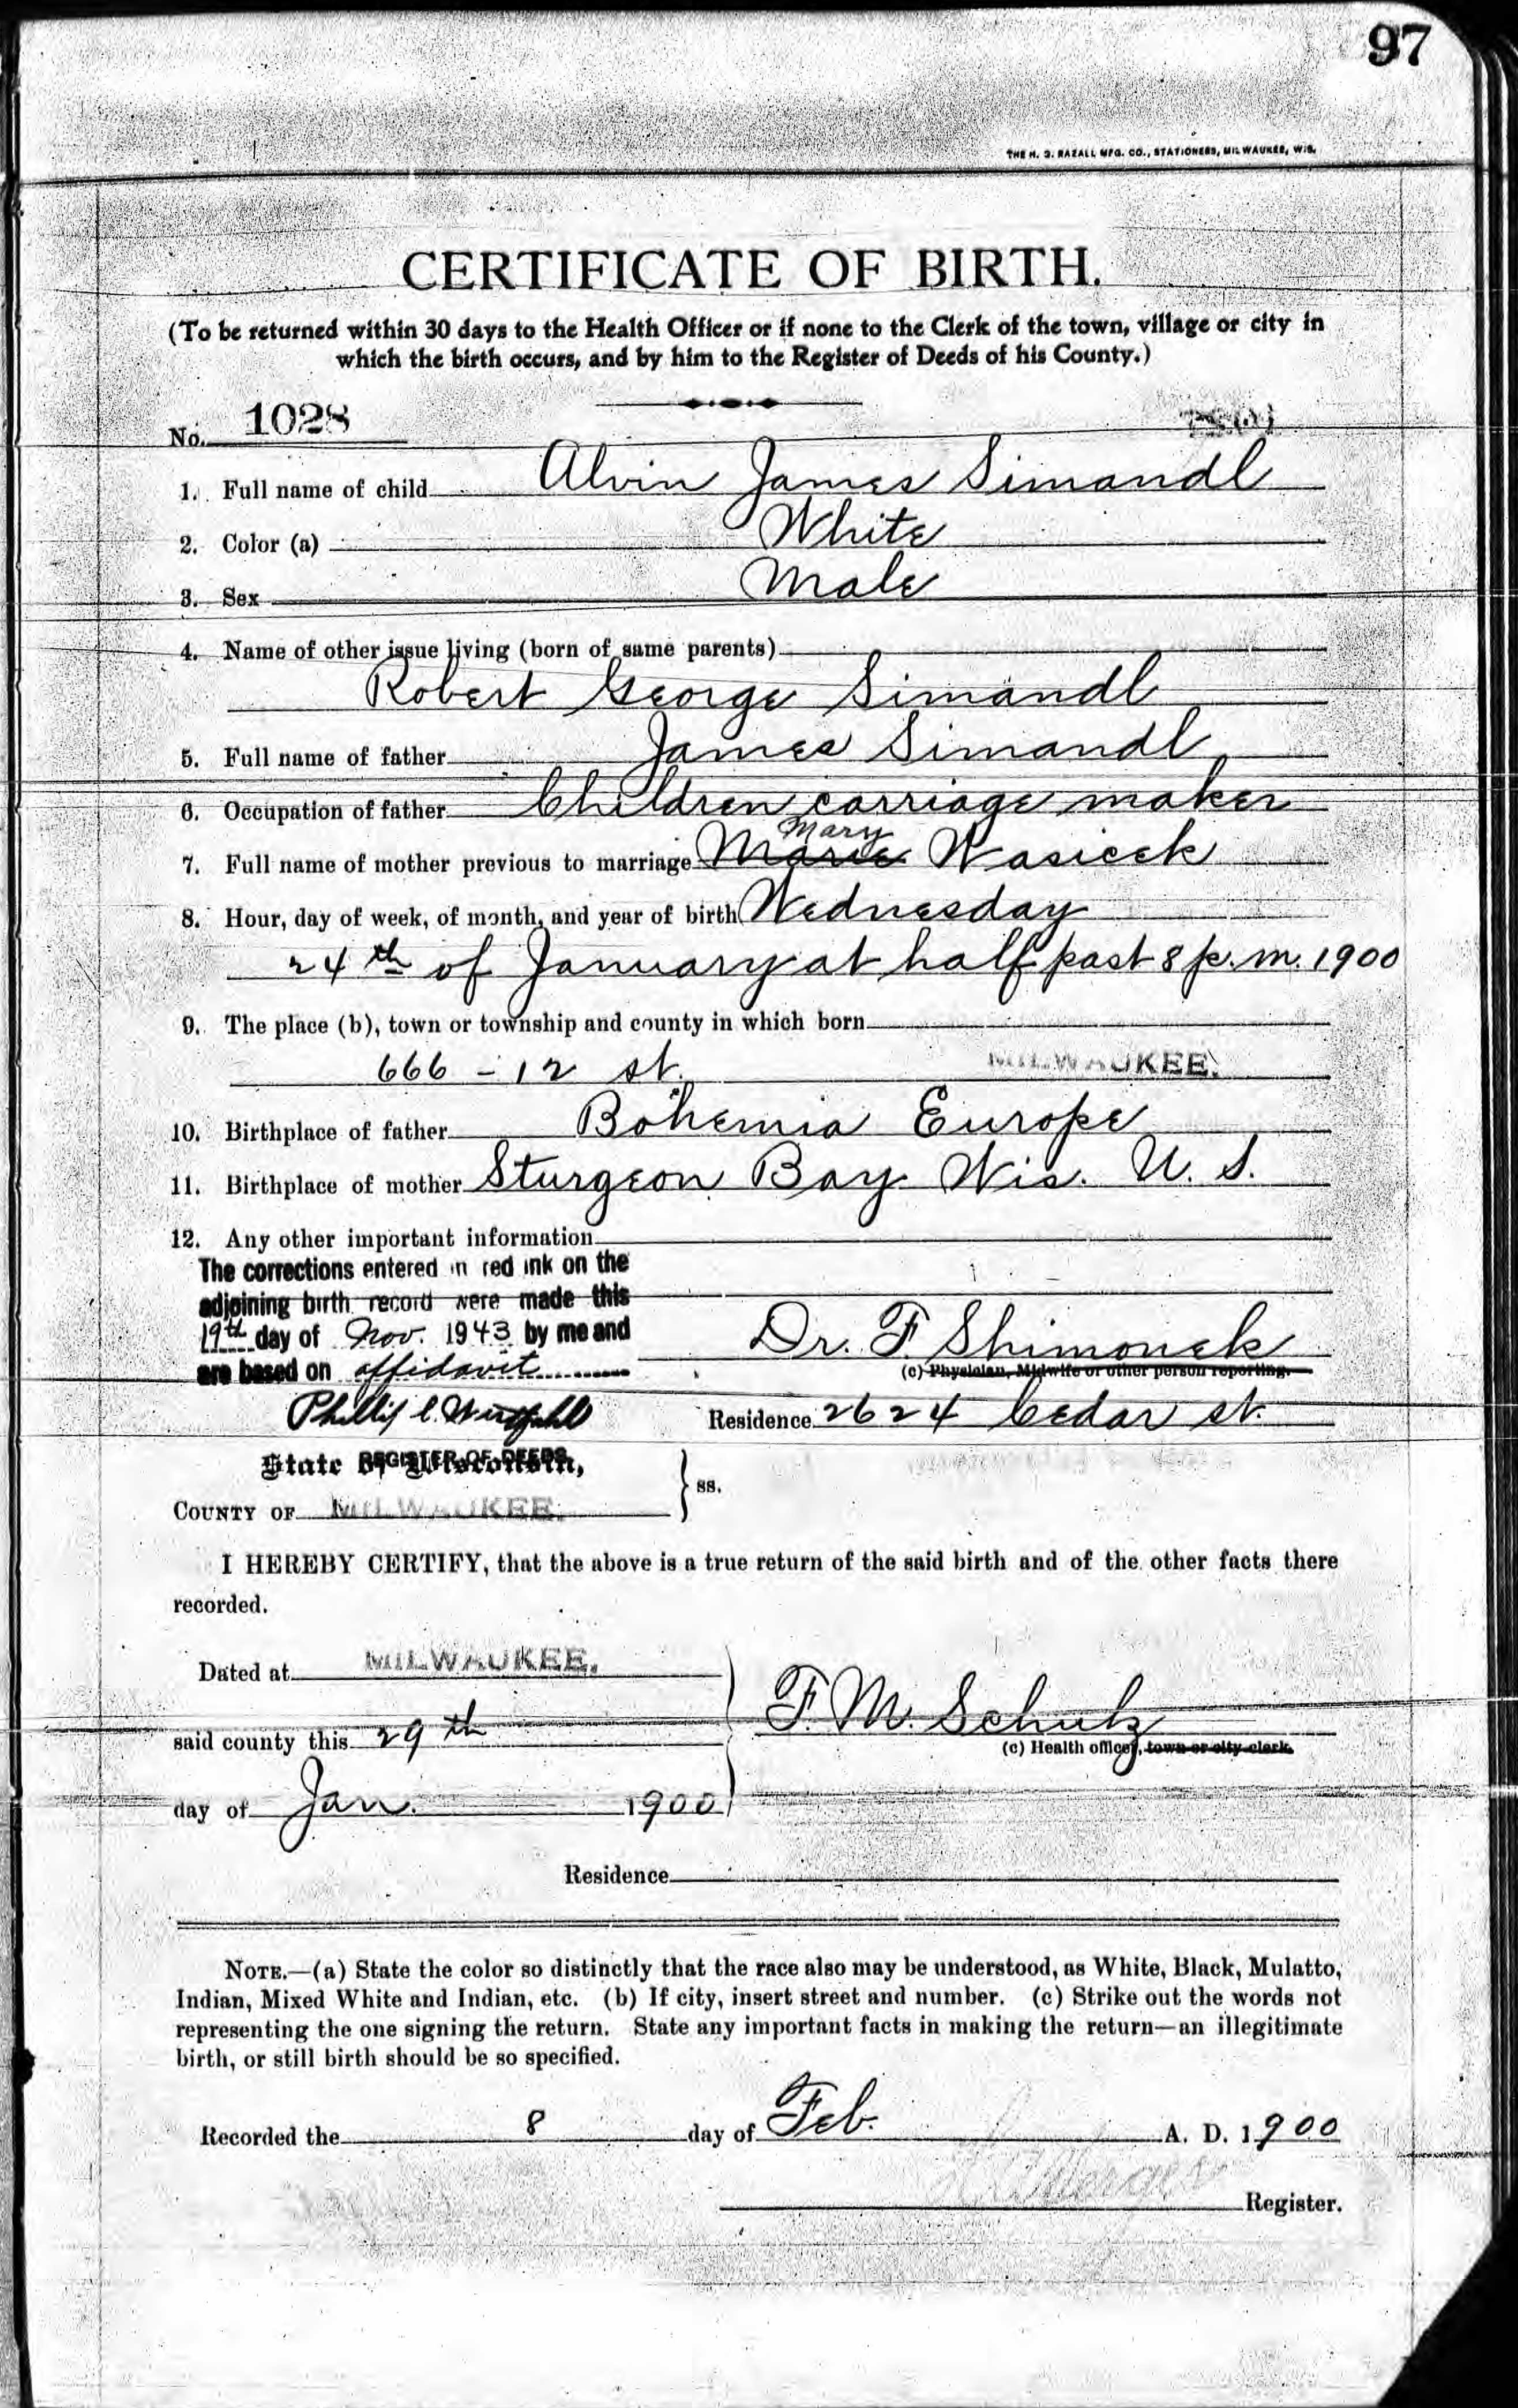 97
THE H. S. RAZALL MFG. CO., STATIONERS, MILWAUKEE, WIS.
CERTIFICATE OF BIRTH.
(To be returned within 30 days to the Health Officer or if none to the Clerk of the town, village or city in
which the birth occurs, and by him to the Register of Deeds of his County.)
No. 1028
1. Full name of child Alvin James Simandl
2. Color (a) White
3. Sex Male
4. Name of other issue living (born of same parents)
Robert George Simandl
5. Full name of father James Simandl
6. Occupation of father Children carriage maker
Mary
7. Full name of mother previous to marriage Marie Wasicek
8. Hour, day of week, of month, and year of birth Wednesday
24th of January at half past 8 p.m. 1900
9. The place (b), town or township and county in which born
666 - 12 st. MILWAUKEE.
10. Birthplace of father Bohemia Europe
11. Birthplace of mother Sturgeon Bay Wis. U. S.
12. Any other important information
The corrections entered in red ink on the
adjoining birth record were made this
19th day of Nov. 1943 by me and
are based on affidavit
Dr. F. Shimonek
(c) Physician, Midwife or other person reporting.
Phillip C. Westfahl
Residence 2624 Cedar st.
REGISTER OF DEEDS
State of Wisconsin,
COUNTY OF MILWAUKEE. ss.
I HEREBY CERTIFY, that the above is a true return of the said birth and of the other facts there
recorded.
Dated at MILWAUKEE.
F. M. Schulz
said county this 29th
(c) Health officer, town or city clerk.
day of Jan. 1900
Residence
NOTE.—(a) State the color so distinctly that the race also may be understood, as White, Black, Mulatto,
Indian, Mixed White and Indian, etc. (b) If city, insert street and number. (c) Strike out the words not
representing the one signing the return. State any important facts in making the return—an illegitimate
birth, or still birth should be so specified.
Recorded the 8 day of Feb. A. D. 1900
Register.